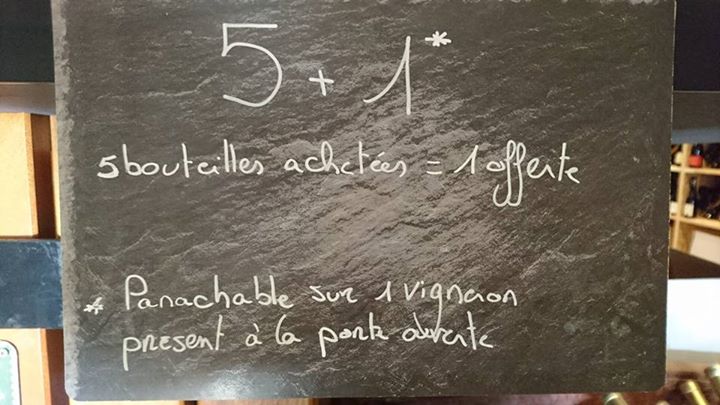 5 + 1*
5 bouteilles achetées = 1 offerte
* Panachable sur 1 vigneron
present à la porte ouverte